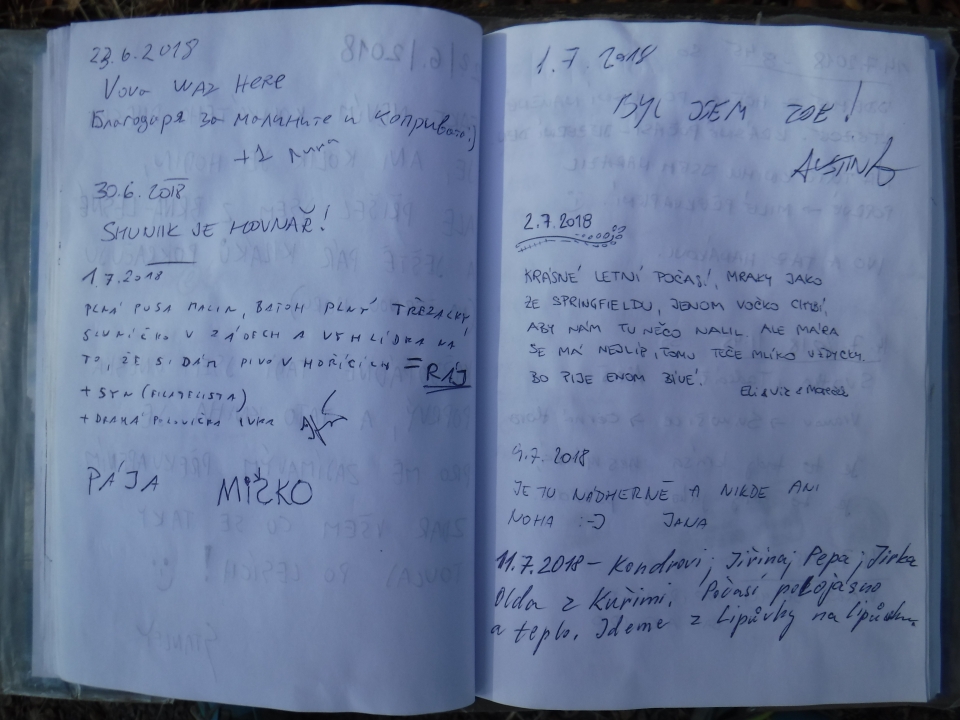 23.6.2018
Vova WAZ HERE
Благодаря за малините и копривата :)
+1
30.6.2018
SHUNIK JE HOVNAŘ!
1.7.2018
PLNÁ PUSA MALIN, BATOH PLNÝ TŘEZALKY
SLUNÍČKO V ZÁDECH A VYHLÍDKA NA
TO, ŽE SI DÁM PIVO V HOŘICÍCH = RÁJ
+ SYN (FILATELISTA)
+ DRAHÁ POLOVIČKA IVKA
PÁJA MIŽKO
1.7.2018
BYL JSEM ZDE!
AUSTIN
2.7.2018
KRÁSNÉ LETNÍ POČASÍ, MRAKY JAKO
ZE SPRINGFIELDU, JENOM VOČKO CHYBÍ,
ABY NÁM TU NĚCO NALIL. ALE MÁRA
SE MÁ NEJLÍP, TOMU TEČE MLÍKO VŽDYCKY.
BO PIJE ENOM BÍVÉ!
9.7.2018
JE TU NÁDHERNĚ A NIKDE ANI
NOHA :-) JANA
11.7.2018 – Kondrovi, Jiřina, Pepa, Jirka
Olda z Kuřimi. Počasí polojasno
a teplo. Jdeme z Lipůvky na Lipůvku.